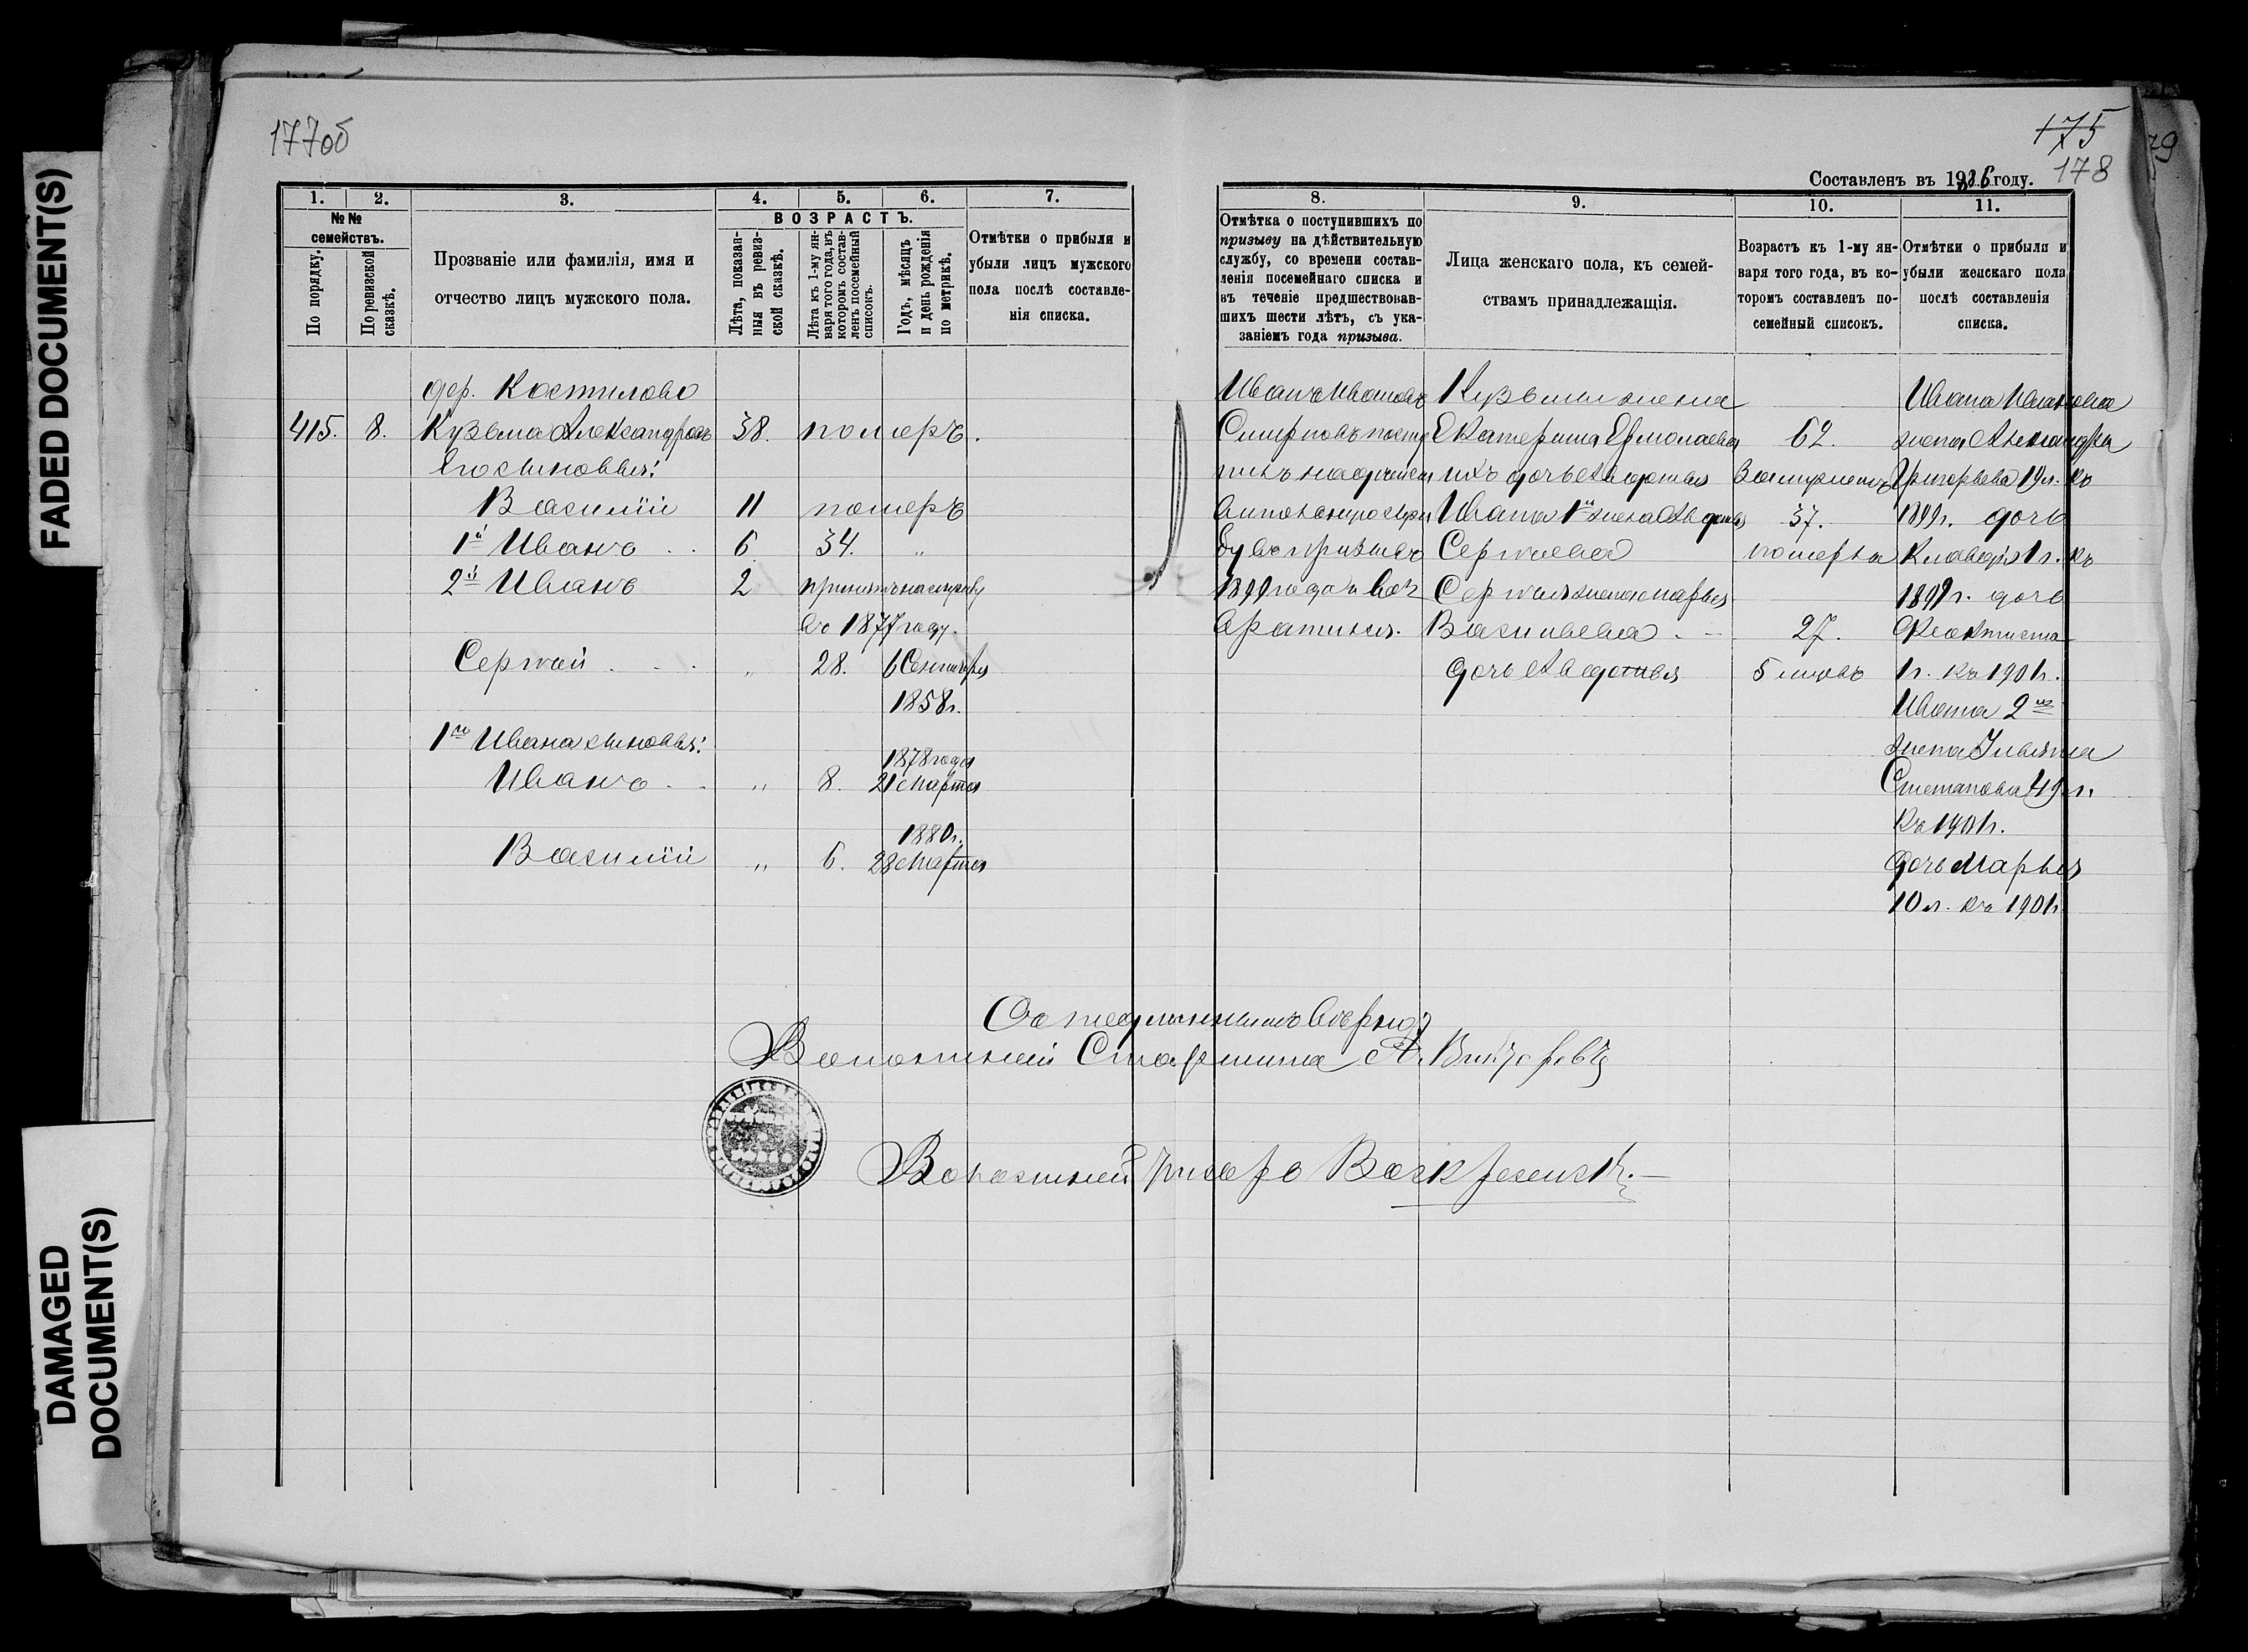 FADED DOCUMENT(S)
DAMAGED
DOCUMENT(S)
177об
175
178
79
Составленъ въ 1886 году.
1. 2. 3. 4. 5. 6. 7.
№№
семействъ.
По порядку.
По ревизской
сказкѣ.
Прозваніе или фамилія, имя и
отчество лицъ мужского пола.
ВОЗРАСТЪ.
Лѣта, показан-
ныя въ ревиз-
ской сказкѣ.
Лѣта къ 1-му ян-
варя того года, въ
которомъ состав-
ленъ посемейный
списокъ.
Годъ, мѣсяцъ
и день рожденія
по метрикѣ.
Отмѣтки о прибыли и
убыли лицъ мужского
пола послѣ составле-
нія списка.
дер. Костылово
415. 8. Кузьма Александровъ 38. померъ.
Его сыновья:
Василій 11 померъ
1й Иванъ . . 6 34. "
2й Иванъ 2 принятъ на службу
въ 1877 году.
Сергѣй . . . " 28. 6 Сентября
1858г.
1го Ивана сыновья:
1878 года
Иванъ . . " 8. 21 Марта
1880г.
Василій " 6. 28 Марта
8. 9. 10. 11.
Отмѣтка о поступившихъ по
призыву на дѣйствительную
службу, со времени состав-
ленія посемейнаго списка и
въ теченіе предшествовав-
шихъ шести лѣтъ, съ ука-
заніемъ года призыва.
Лица женскаго пола, къ семей-
ствамъ принадлежащія.
Возрастъ къ 1-му ян-
варя того года, въ ко-
торомъ составленъ по-
семейный списокъ.
Отмѣтки о прибыли и
убыли женскаго пола
послѣ составленія
списка.
Иванъ Ивановъ
Смирновъ
въ призывъ
1899 года и воз
вратился.
Кузьмы жена
Екатерина Ермолаева 62.
ихъ дочь Авдотья Замужемъ
Ивана 1й жена Авдотья 37.
Сергѣева померла
Сергѣя жена Марья
Васильева . — 27.
дочь Авдотья 5 мѣсяцъ
Ивана Иванова
жена Александра
Григорьева 19 л. къ
1899г. дочь
Клавдія 1 г. къ
1899г. дочь
Феоктиста
1г. къ 1901г.
Ивана 2го
жена Ульяна
Степанова 49 л.
къ 1901г.
дочь Марья
10 л. къ 1901г.
Съ подлиннымъ вѣрно:
Волостной Старшина А. Викторовъ
Волостной писарь Воскресенск.